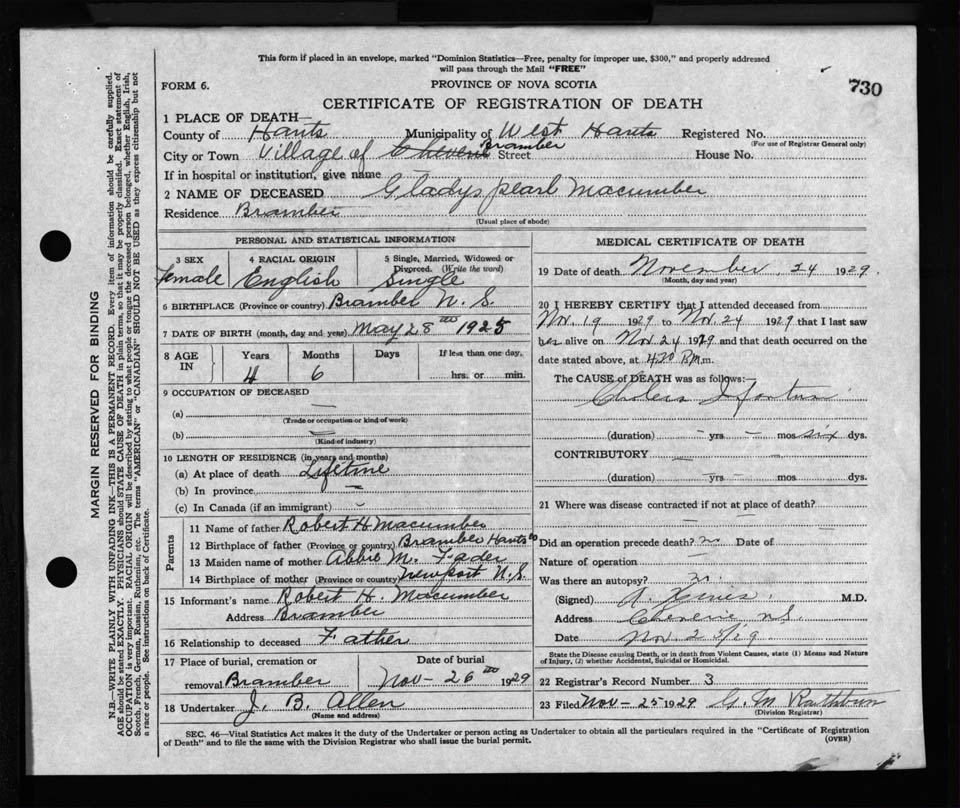 This form if placed in an envelope, marked "Dominion Statistics—Free, penalty for improper use, $300," and properly addressed
will pass through the Mail "FREE"
FORM 6.
PROVINCE OF NOVA SCOTIA
730
CERTIFICATE OF REGISTRATION OF DEATH
1 PLACE OF DEATH—
County of Hants Municipality of West Hants Registered No.
(For use of Registrar General only)
City or Town Village of Bramber Street House No.
If in hospital or institution, give name
2 NAME OF DECEASED Gladys pearl Macumber
Residence Bramber
(Usual place of abode)
PERSONAL AND STATISTICAL INFORMATION
3 SEX Female
4 RACIAL ORIGIN English
5 Single, Married, Widowed or Divorced. (Write the word) Single
6 BIRTHPLACE (Province or country) Bramber N. S.
7 DATE OF BIRTH (month, day and year) May 28th 1925
8 AGE IN Years Months Days If less than one day,
4 6 hrs. or min.
9 OCCUPATION OF DECEASED
(a) —
(Trade or occupation or kind of work)
(b) —
(Kind of industry)
10 LENGTH OF RESIDENCE (in years and months)
(a) At place of death Lifetime
(b) In province —
(c) In Canada (if an immigrant) –
Parents
11 Name of father Robert H Macumber
12 Birthplace of father (Province or country) Bramber Hants Co
13 Maiden name of mother Abbie M. Fader
14 Birthplace of mother (Province or country) Newport N.S.
15 Informant's name Robert H. Macumber
Address Bramber
16 Relationship to deceased Father
17 Place of burial, cremation or Date of burial
removal Bramber Nov- 26th 1929
18 Undertaker J. B. Allen
(Name and address)
MEDICAL CERTIFICATE OF DEATH
19 Date of death November 24 1929.
(Month, day and year)
20 I HEREBY CERTIFY that I attended deceased from
Nov. 19 1929 to Nov. 24 1929 that I last saw
her alive on Nov. 24 1929 and that death occurred on the
date stated above, at P.M. m.
The CAUSE of DEATH was as follows:—
Cholera Infantum
(duration) – yrs – mos six dys.
CONTRIBUTORY —
(duration) – yrs – mos dys.
21 Where was disease contracted if not at place of death?
Did an operation precede death? Date of
Nature of operation —
Was there an autopsy?
(Signed) M.D.
Address Cheverie N.S.
Date Nov. 25/29.
State the Disease causing Death, or in death from Violent Causes, state (1) Means and Nature
of Injury, (2) whether Accidental, Suicidal or Homicidal.
22 Registrar's Record Number 3
23 Filed Nov- 25 1929 G. M.
(Division Registrar)
SEC. 46—Vital Statistics Act makes it the duty of the Undertaker or person acting as Undertaker to obtain all the particulars required in the "Certificate of Registration
of Death" and to file the same with the Division Registrar who shall issue the burial permit.
(OVER)
MARGIN RESERVED FOR BINDING
N.B.—WRITE PLAINLY WITH UNFADING INK—THIS IS A PERMANENT RECORD. Every item of information should be carefully supplied.
AGE should be stated EXACTLY. PHYSICIANS should STATE CAUSE OF DEATH in plain terms, so that it may be properly classified. Exact statement of
OCCUPATION is very important. RACIAL ORIGIN will be described by stating to what people or tongue the deceased person belonged, whether English, Irish,
Scotch, French, German, Russian, Ruthenian, etc. The terms "AMERICAN" or "CANADIAN" SHOULD NOT BE USED as they express citizenship but not
a race or people. See instructions on back of Certificate.